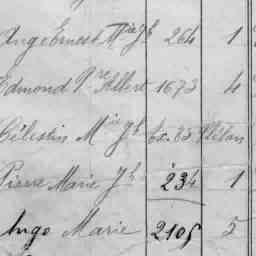 Ange Ernest Mie Jh 264 1
Edmond Pre Albert 1673 4
Célestin Mie Jh Ex. E3
Pierre Marie Jh 234 1
Ange Marie 2105 5